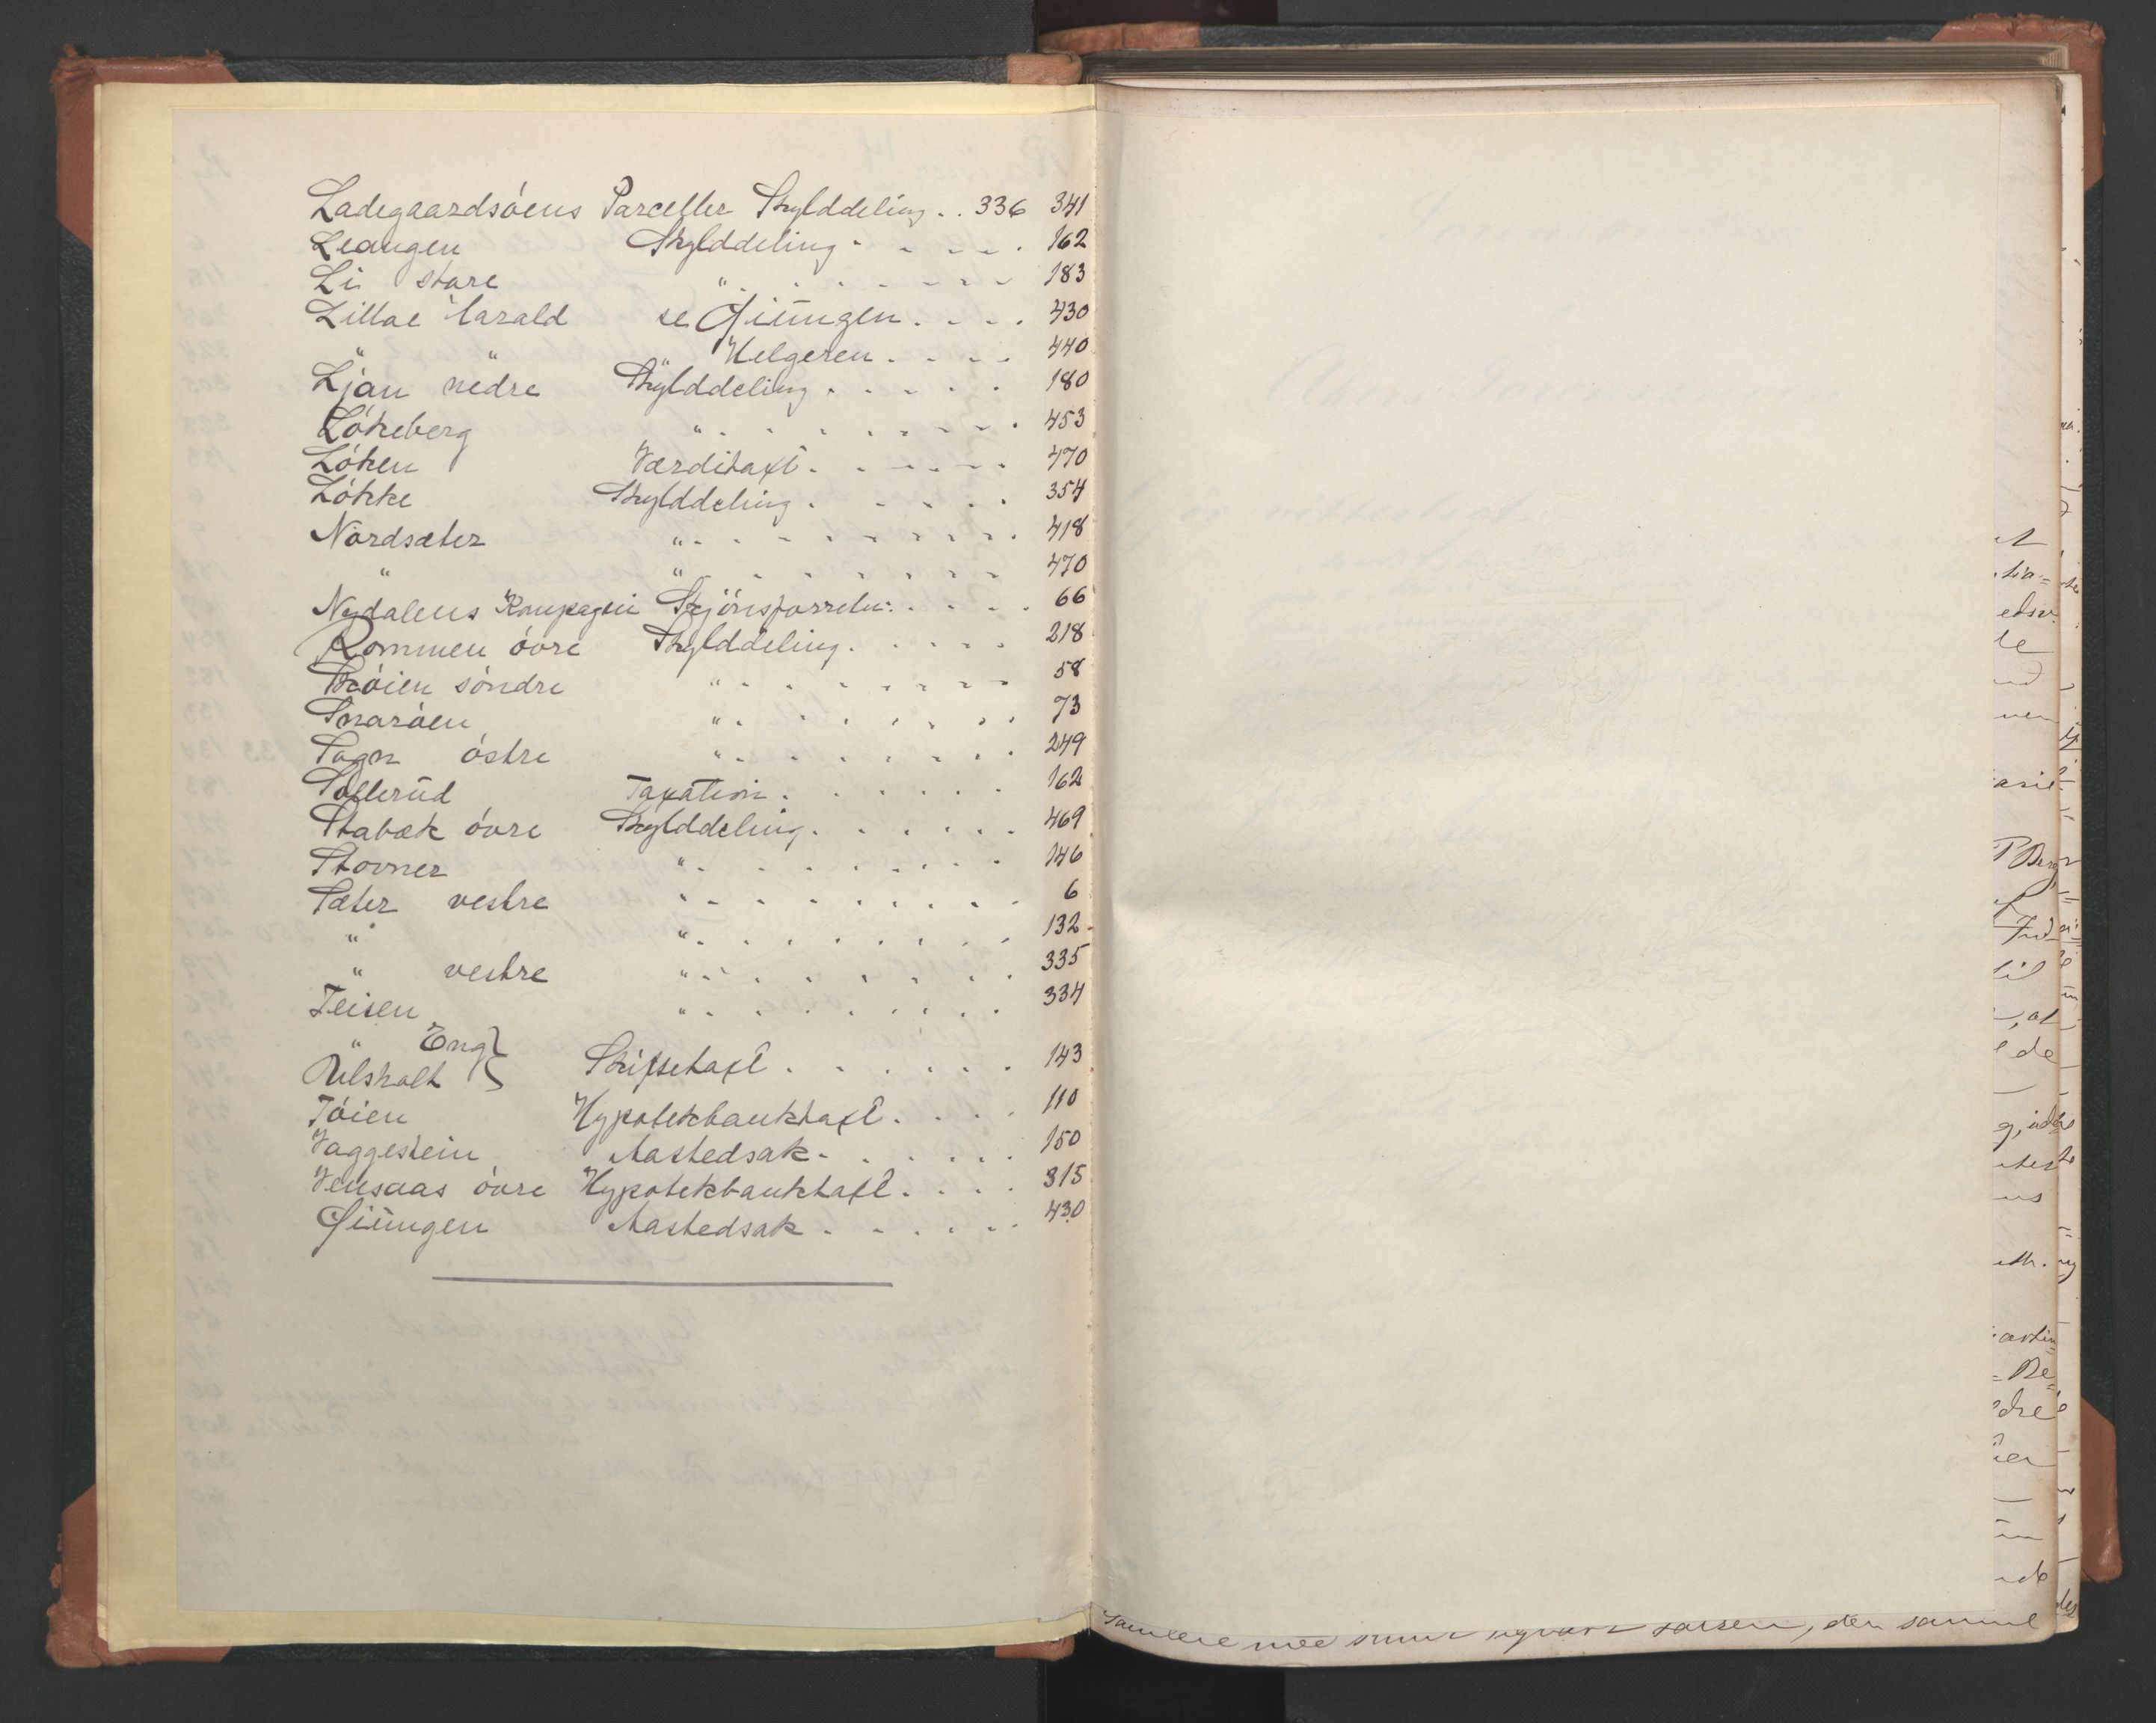 Ladegaardsöens Parceller Skylddeling . . 336 341
Leangen Skylddeling . . . . . 162
Li store " . . . . . . . . 183
Lilloe Harald se Giüngen . . . . 430
" " " Helgeren . . . . 440
Ljan nedre Skylddeling . . . . . . 180
Lökeberg " . . . . . . . . . 453
Löken Værditaxt . . . . . . 470
Lökke Skylddeling . . . . . 354
Nordsæter " . . . . . . . . . 418
" " . . . . . . . 470
Nydalens Kompagni Skjönsforretn: . . . . . 66
Rommen övre Skylddeling . . . . . 218
Skøien söndre " . . . . . . . . 58
Snaröen " . . . . . . . 73
Sogn östre " . . . . . . . 249
Sollerud Taxation . . . . . . 162
Stabæk övre Skylddeling . . . . . . 469
Stovner " . . . . . . . . 146
Sæter vestre " . . . . . . . . . 6
" " . . . . . . . . 132
" vestre " . . . . . . . . 335
Teisen " . . . . . . . . 334
" Eng }
Ulsholt } Skiftetaxt . . . . . . 143
Töien Hypotekbanktaxt . . . . 110
Vaggestein Aastedsak . . . . . . 150
Vensaas övre Hypotekbanktaxt . . . . 315
Giüngen Aastedsak . . . . . . 430